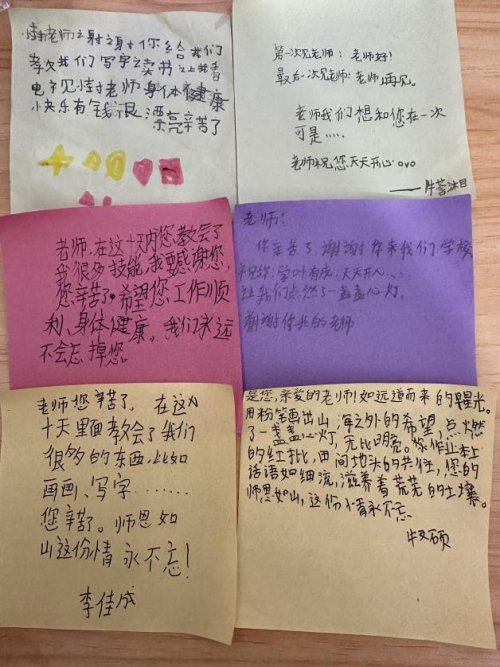 老师谢谢你给我们
教我们写字读书
老师身体健康
快乐有钱 漂亮辛苦了
第一次见老师：老师好！
最后一次见老师：老师再见。
老师我们想和您在一次
可是……
老师祝您天天开心ovo
老师，在这十天内您教会了
我很多技能，我要感谢您，
您辛苦了。希望您工作顺
利、身体健康。我们永远
不会忘掉您。
老师：
你辛苦了，谢谢你来我们学校
祝你：学业有成，天天开心
让我们点燃了一盏盏心灯。
谢谢你我的老师
老师您辛苦了，在这
十天里面教会了我们
很多的东西，比如
画画、写字……
您辛苦了。师恩如
山这份情永不忘！
李佳成
是您，亲爱的老师！如远道而来的曙光。
用粉笔画出山海之外的希望，点燃
了一盏盏心灯，无比明亮。你作业本上
的红批，田间地头的共往，您的
话语如细流，滋养着荒芜的土壤。
师恩如山，这份情永不忘